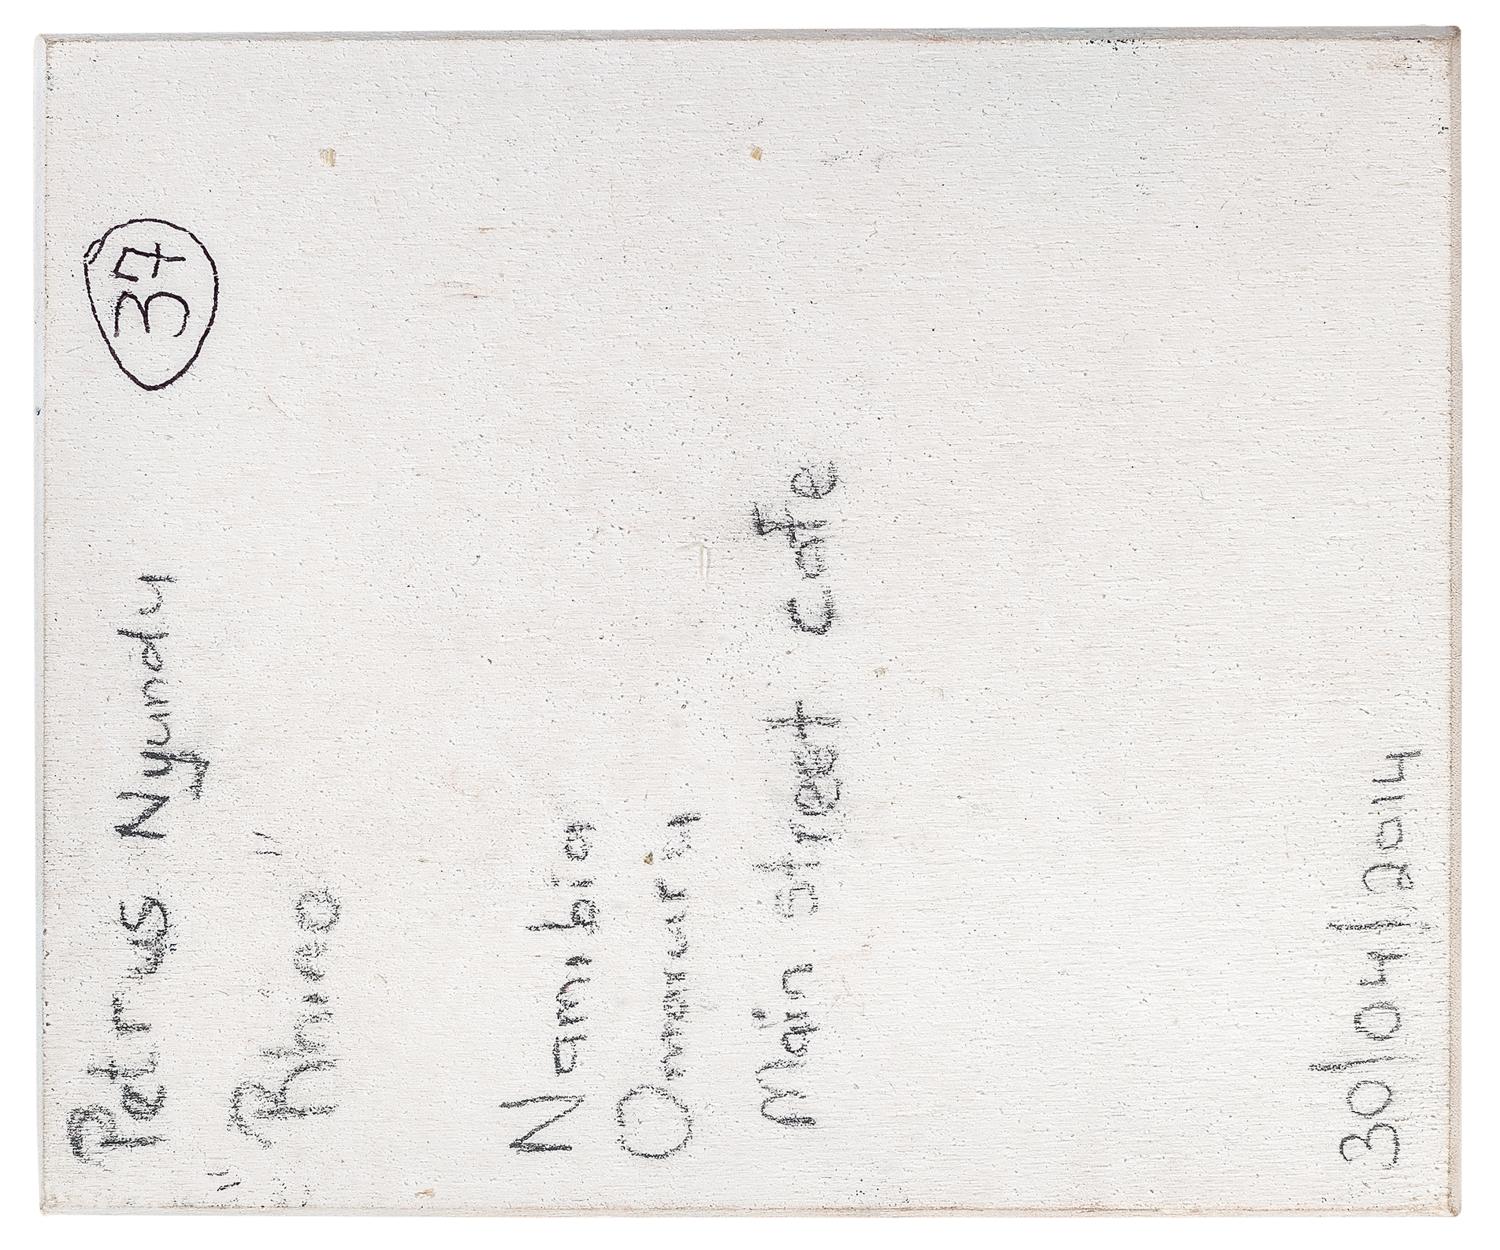 Petrus Nyundu
37
"Rhino"
Namibia
Omaruru
Main street cafe
30/04/2014